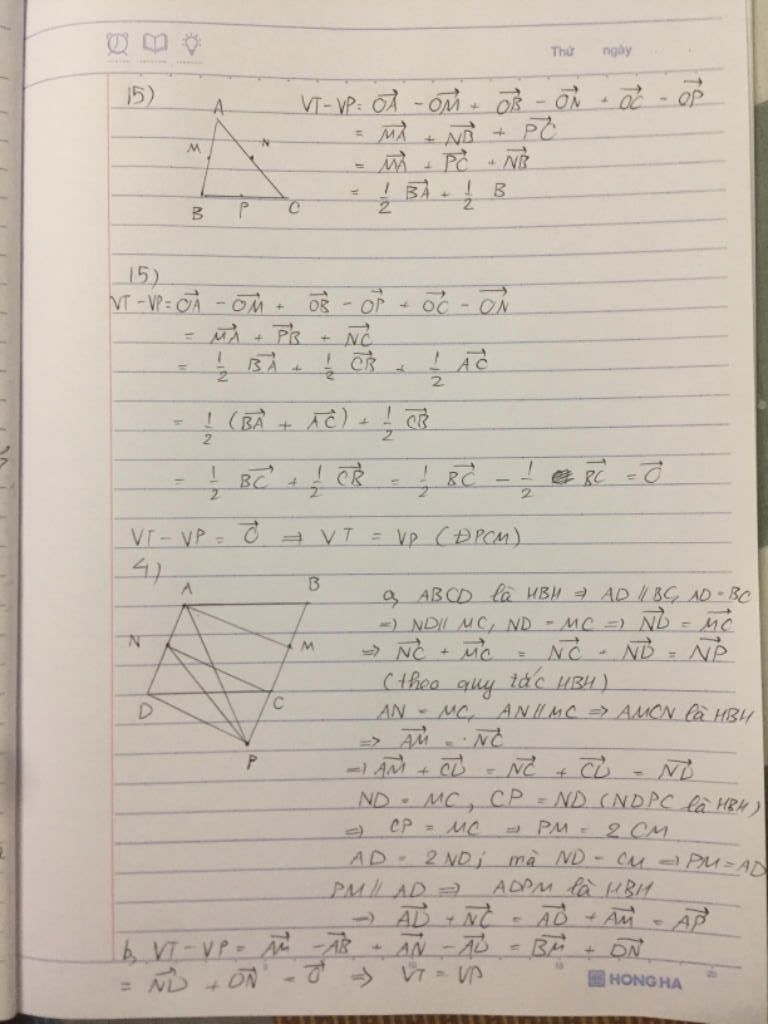 Thứ ngày
15)
A
M
N
B
P
C
VT-VP= OA⃗ - OM⃗ + OB⃗ - ON⃗ + OC⃗ - OP⃗
= MA⃗ + NB⃗ + PC⃗
= MA⃗ + PC⃗ + NB⃗
= 1/2 BA⃗ + 1/2 B
15)
VT-VP= OA⃗ - OM⃗ + OB⃗ - OP⃗ + OC⃗ - ON⃗
= MA⃗ + PB⃗ + NC⃗
= 1/2 BA⃗ + 1/2 CB⃗ + 1/2 AC⃗
= 1/2 (BA⃗ + AC⃗) + 1/2 CB⃗
= 1/2 BC⃗ + 1/2 CB⃗ = 1/2 BC⃗ - 1/2 BC⃗ = O⃗
VT-VP = O⃗ ⇒ VT = VP (ĐPCM)
4)
A
B
N
M
D
C
P
a, ABCD là HBH ⇒ AD // BC, AD = BC
⇒ ND // MC, ND = MC ⇒ ND⃗ = MC⃗
⇒ NC⃗ + MC⃗ = NC⃗ + ND⃗ = NP⃗
(theo quy tắc HBH)
AN = MC, AN // MC ⇒ AMCN là HBH
⇒ AM⃗ = NC⃗
⇒ AM⃗ + CD⃗ = NC⃗ + CD⃗ = ND⃗
ND = MC, CP = ND (NDPC là HBH)
⇒ CP = MC ⇒ PM = 2 CM
AD = 2 ND; mà ND = CM ⇒ PM = AD
PM // AD ⇒ ADPM là HBH
⇒ AD⃗ + NC⃗ = AD⃗ + AM⃗ = AP⃗
b, VT-VP= AM⃗ - AB⃗ + AN⃗ - AD⃗ = BM⃗ + DN⃗
= ND⃗ + DN⃗ = O⃗ ⇒ VT = VP
HONG HA